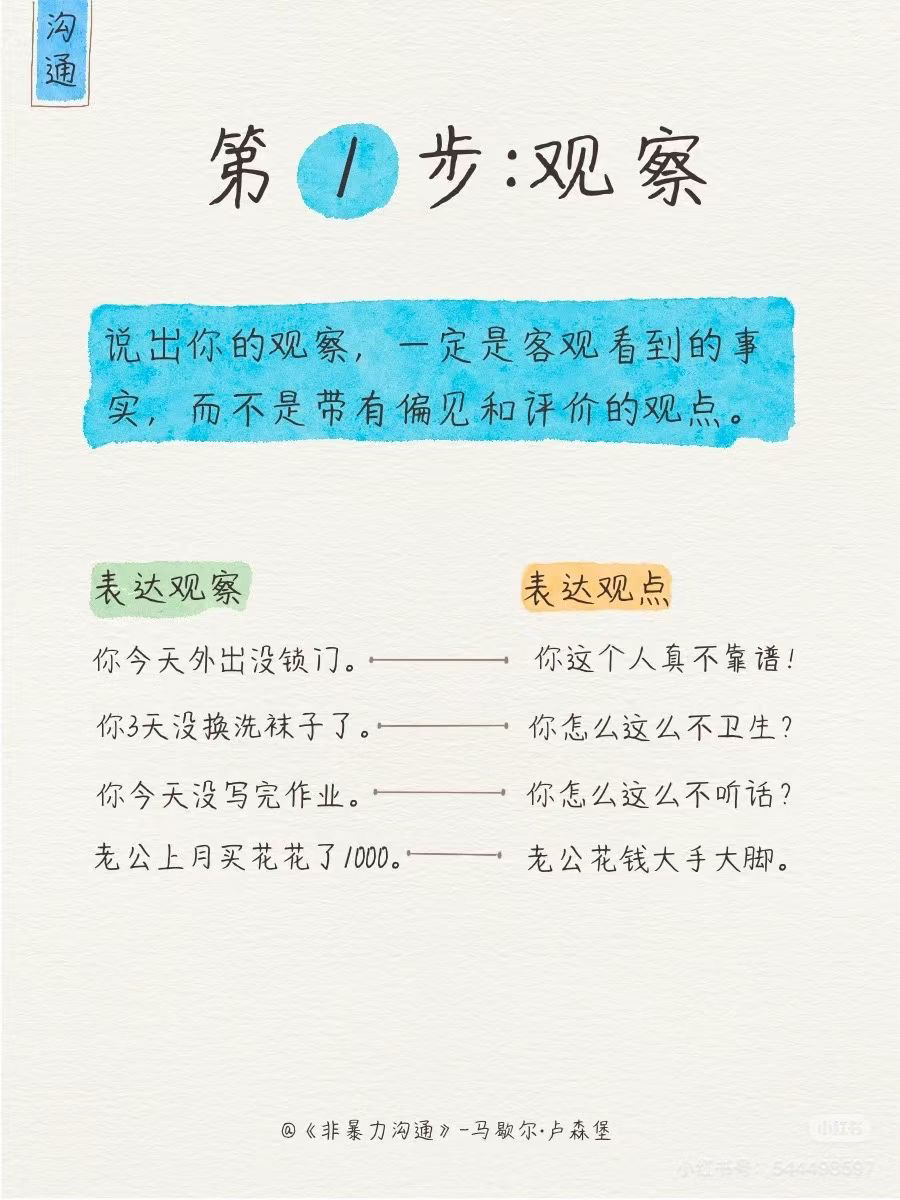 沟
通
第1步:观察
说出你的观察，一定是客观看到的事
实，而不是带有偏见和评价的观点。
表达观察
表达观点
你今天外出没锁门。
你这个人真不靠谱！
你3天没换洗袜子了。
你怎么这么不卫生？
你今天没写完作业。
你怎么这么不听话？
老公上月买花花了1000。
老公花钱大手大脚。
@《非暴力沟通》-马歇尔·卢森堡
小红书
小红书号：544498597